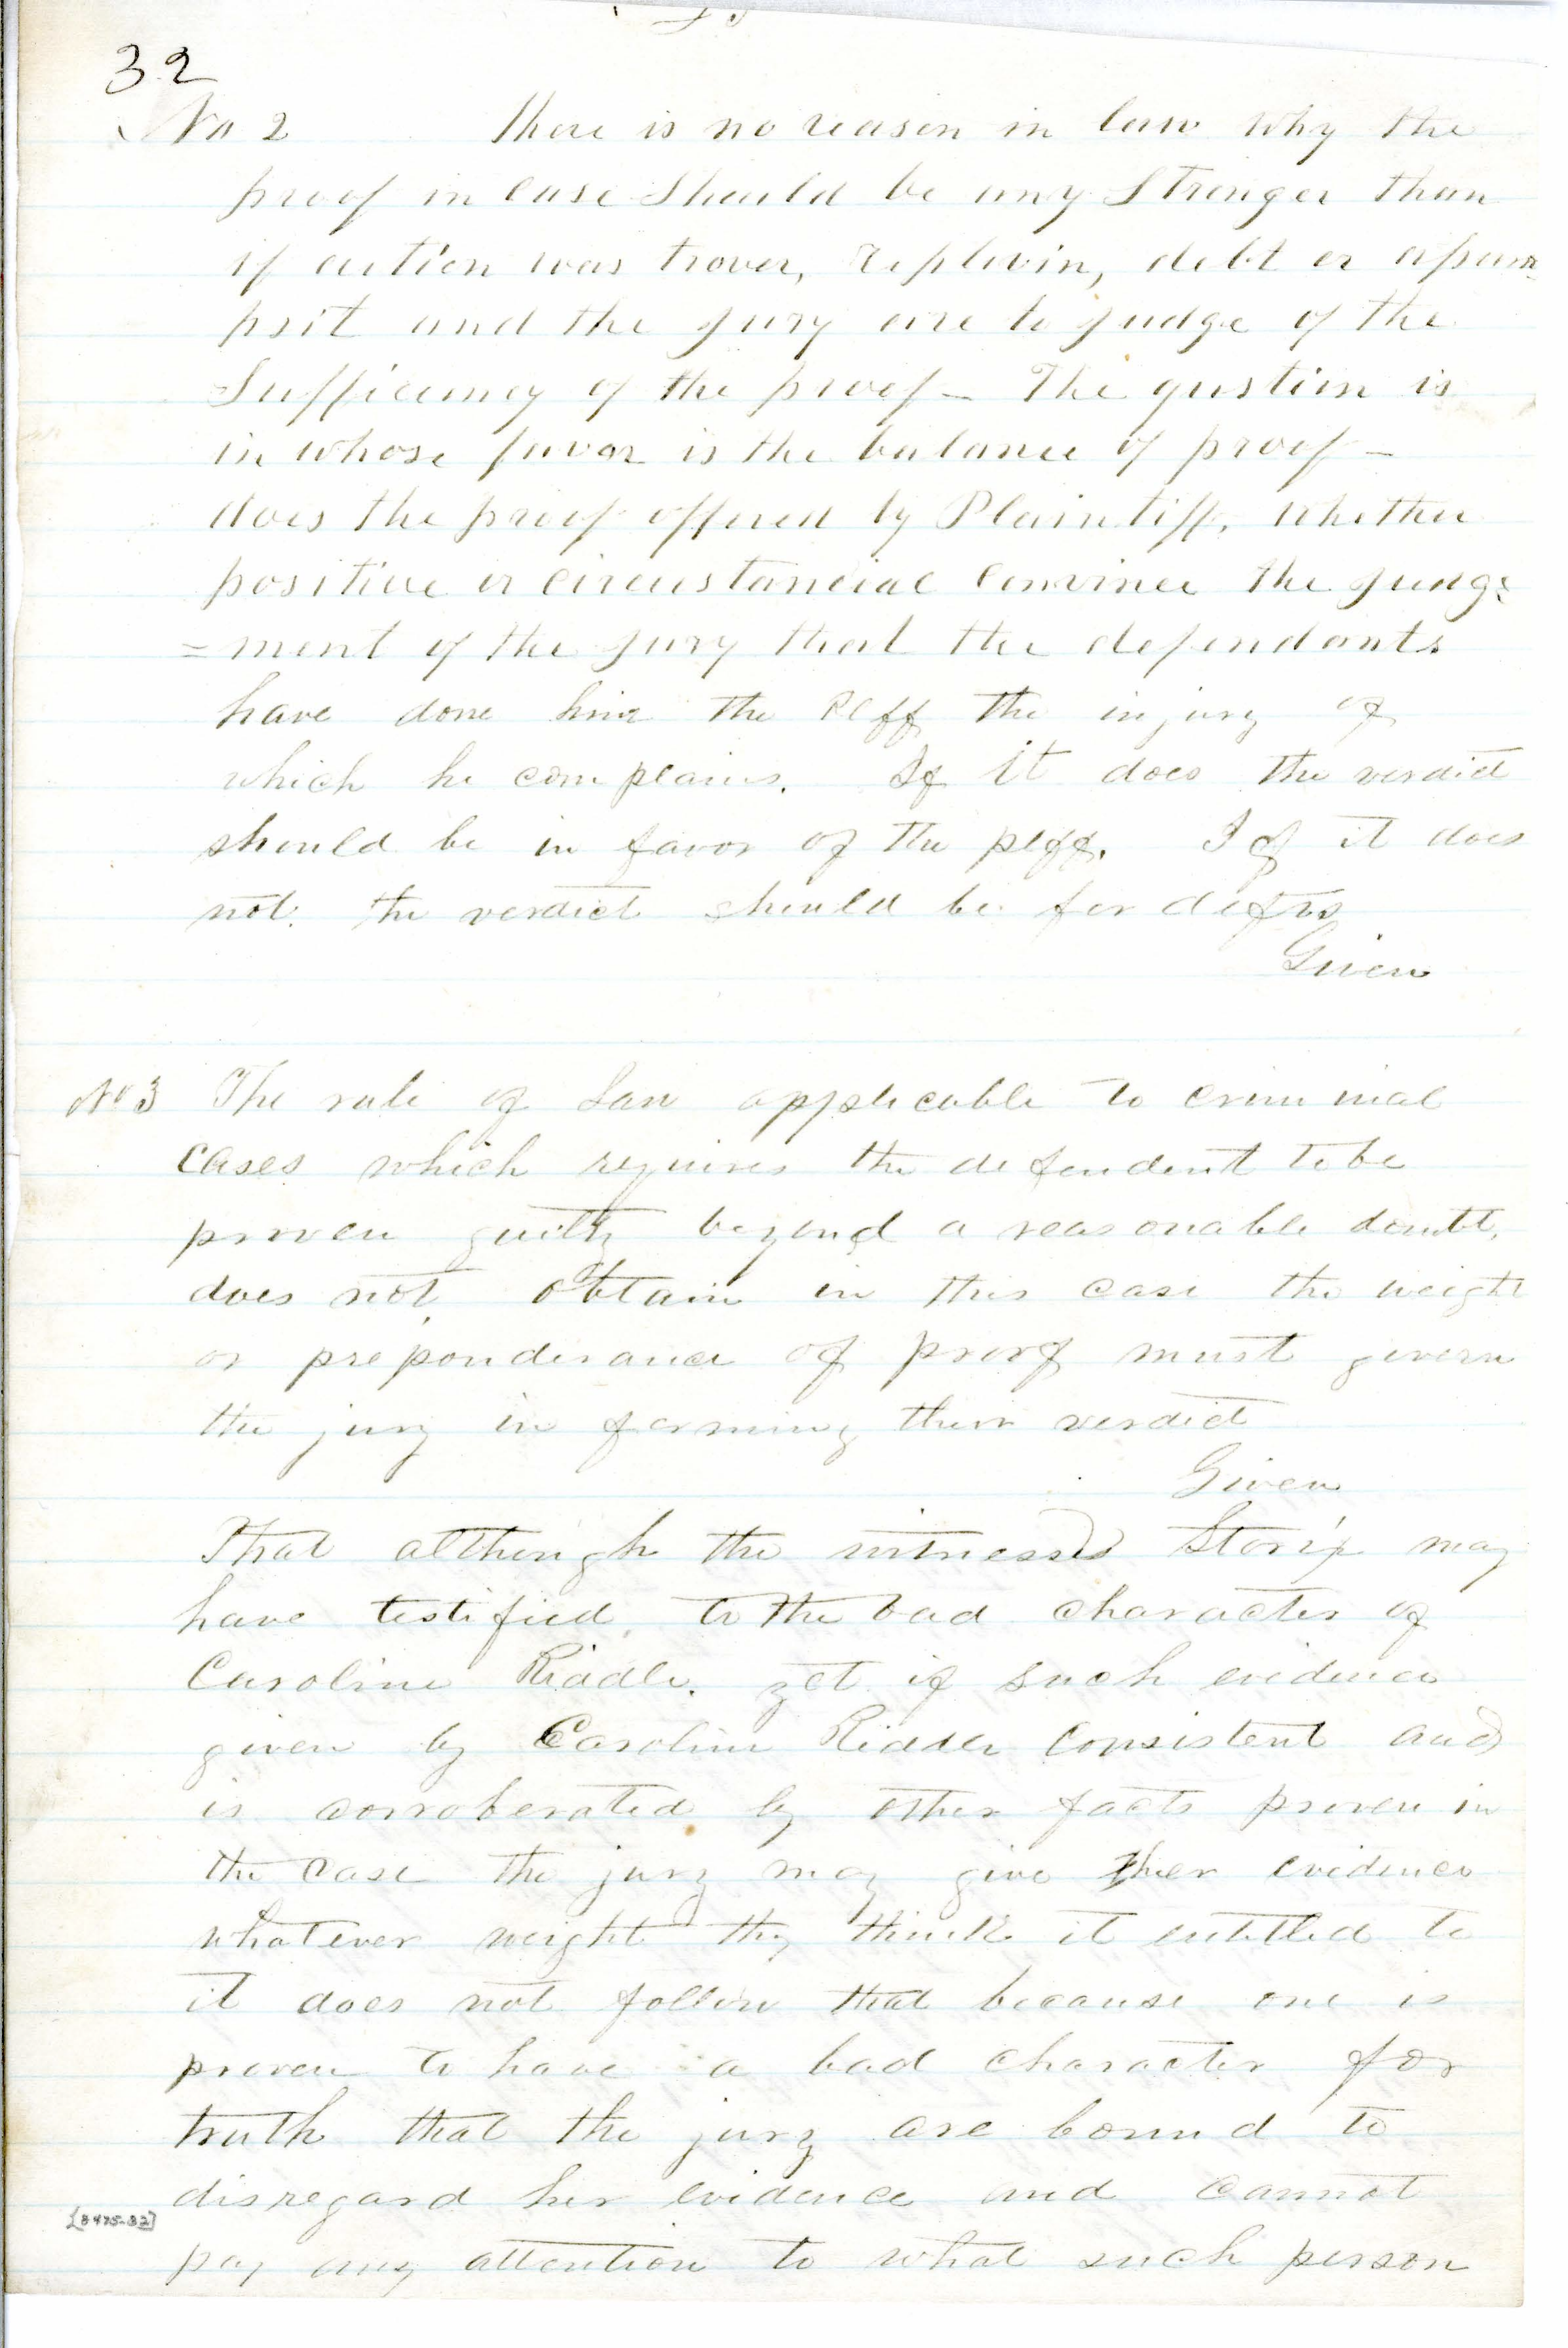 32
No 2 There is no reason in law why the
proof in case should be any stronger than
if action was trover, replevin, debt or assum
psit and the jury are to judge of the
Sufficiency of the proof — The qustion is
in whose favor is the balance of proof —
does the proof offered by Plaintiff, whether
positive or circustancial convince the judg=
=ment of the jury that the defendants
have done him the Plff the injury of
which he complains. If it does the verdict
should be in favor of the plff. If it does
not. the verdict should be for defts
Given
No 3 The rule of Law applicable to criminal
cases which requires the defendent to be
proven guilty beyond a reasonable doubt,
does not obtain in this case the weight
or preponderance of proof must govern
the jury in forming their verdict
Given
That although the witnesses may
have testified, to the bad character of
Caroline Riddle. yet if such evidence
given by Caroline Riddle consistent and
is corroberated by other facts proven in
the case the jury may give her evidence
whatever weight thy think it entitled to
it does not follow that because one is
proven to have a bad character for
truth that the jury are bound to
disregard her evidence and cannot
pay any attention to what such person
[8475-32]